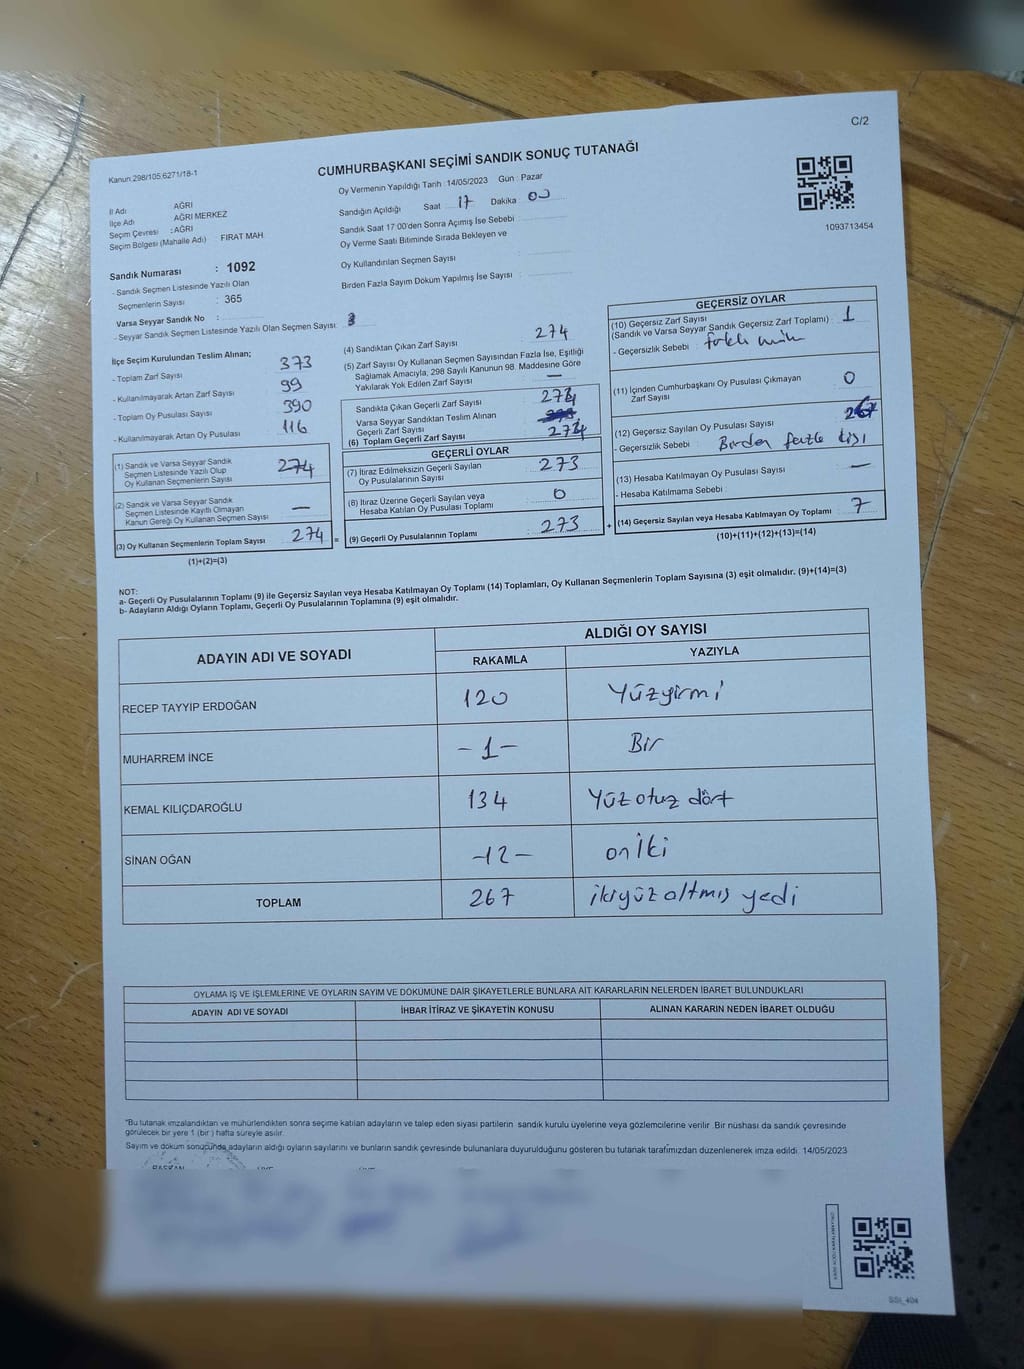 C/2
Kanun:298/105,6271/18-1
CUMHURBAŞKANI SEÇİMİ SANDIK SONUÇ TUTANAĞI
İl Adı AĞRI
İlçe Adı AĞRI MERKEZ
Seçim Çevresi : AĞRI
Seçim Bölgesi (Mahalle Adı) FIRAT MAH.
Sandık Numarası : 1092
- Sandık Seçmen Listesinde Yazılı Olan
Seçmenlerin Sayısı : 365
Varsa Seyyar Sandık No :
- Seyyar Sandık Seçmen Listesinde Yazılı Olan Seçmen Sayısı :
Oy Vermenin Yapıldığı Tarih : 14/05/2023 Gün : Pazar
Sandığın Açıldığı Saat 17 Dakika 00
Sandık Saat 17:00'den Sonra Açımış İse Sebebi :
Oy Verme Saati Bitiminde Sırada Bekleyen ve
Oy Kullandırılan Seçmen Sayısı :
Birden Fazla Sayım Döküm Yapılmış İse Sayısı :
1093713454
İlçe Seçim Kurulundan Teslim Alınan;
- Toplam Zarf Sayısı : 373
- Kullanılmayarak Artan Zarf Sayısı : 99
- Toplam Oy Pusulası Sayısı : 390
- Kullanılmayarak Artan Oy Pusulası : 116
(1) Sandık ve Varsa Seyyar Sandık
Seçmen Listesinde Yazılı Olup
Oy Kullanan Seçmenlerin Sayısı 274
(2) Sandık ve Varsa Seyyar Sandık
Seçmen Listesinde Kayıtlı Olmayan
Kanun Gereği Oy Kullanan Seçmen Sayısı —
(3) Oy Kullanan Seçmenlerin Toplam Sayısı 274 =
(1)+(2)=(3)
(4) Sandıktan Çıkan Zarf Sayısı : 274
(5) Zarf Sayısı Oy Kullanan Seçmen Sayısından Fazla İse, Eşitliği
Sağlamak Amacıyla, 298 Sayılı Kanunun 98. Maddesine Göre
Yakılarak Yok Edilen Zarf Sayısı : —
Sandıkta Çıkan Geçerli Zarf Sayısı :
Varsa Seyyar Sandıktan Teslim Alınan
Geçerli Zarf Sayısı :
(6) Toplam Geçerli Zarf Sayısı :
GEÇERLİ OYLAR
(7) İtiraz Edilmeksizin Geçerli Sayılan
Oy Pusulalarının Sayısı : 273
(8) İtiraz Üzerine Geçerli Sayılan veya
Hesaba Katılan Oy Pusulası Toplamı : 0
(9) Geçerli Oy Pusulalarının Toplamı : 273 +
GEÇERSİZ OYLAR
(10) Geçersiz Zarf Sayısı
(Sandık ve Varsa Seyyar Sandık Geçersiz Zarf Toplamı) : 1
- Geçersizlik Sebebi :
(11) İçinden Cumhurbaşkanı Oy Pusulası Çıkmayan
Zarf Sayısı : 0
(12) Geçersiz Sayılan Oy Pusulası Sayısı :
- Geçersizlik Sebebi : Birden fazla kişi
(13) Hesaba Katılmayan Oy Pusulası Sayısı : —
- Hesaba Katılmama Sebebi :
(14) Geçersiz Sayılan veya Hesaba Katılmayan Oy Toplamı : 7
(10)+(11)+(12)+(13)=(14)
NOT:
a- Geçerli Oy Pusulalarının Toplamı (9) ile Geçersiz Sayılan veya Hesaba Katılmayan Oy Toplamı (14) Toplamları, Oy Kullanan Seçmenlerin Toplam Sayısına (3) eşit olmalıdır. (9)+(14)=(3)
b- Adayların Aldığı Oyların Toplamı, Geçerli Oy Pusulalarının Toplamına (9) eşit olmalıdır.
ADAYIN ADI VE SOYADI ALDIĞI OY SAYISI
RAKAMLA YAZIYLA
RECEP TAYYİP ERDOĞAN 120 Yüzyirmi
MUHARREM İNCE -1- Bir
KEMAL KILIÇDAROĞLU 134 Yüz otuz dört
SİNAN OĞAN -12- on iki
TOPLAM 267 ikiyüz altmış yedi
OYLAMA İŞ VE İŞLEMLERİNE VE OYLARIN SAYIM VE DÖKÜMÜNE DAİR ŞİKAYETLERLE BUNLARA AİT KARARLARIN NELERDEN İBARET BULUNDUKLARI
ADAYIN ADI VE SOYADI İHBAR İTİRAZ VE ŞİKAYETİN KONUSU ALINAN KARARIN NEDEN İBARET OLDUĞU
"Bu tutanak imzalandıktan ve mühürlendikten sonra seçime katılan adayların ve talep eden siyasi partilerin sandık kurulu üyelerine veya gözlemcilerine verilir. Bir nüshası da sandık çevresinde
görülecek bir yere 1 (bir ) hafta süreyle asılır.
Sayım ve döküm sonucunda adayların aldığı oyların sayılarını ve bunların sandık çevresinde bulunanlara duyurulduğunu gösteren bu tutanak tarafımızdan düzenlenerek imza edildi. 14/05/2023
BAŞKAN
SSI_404